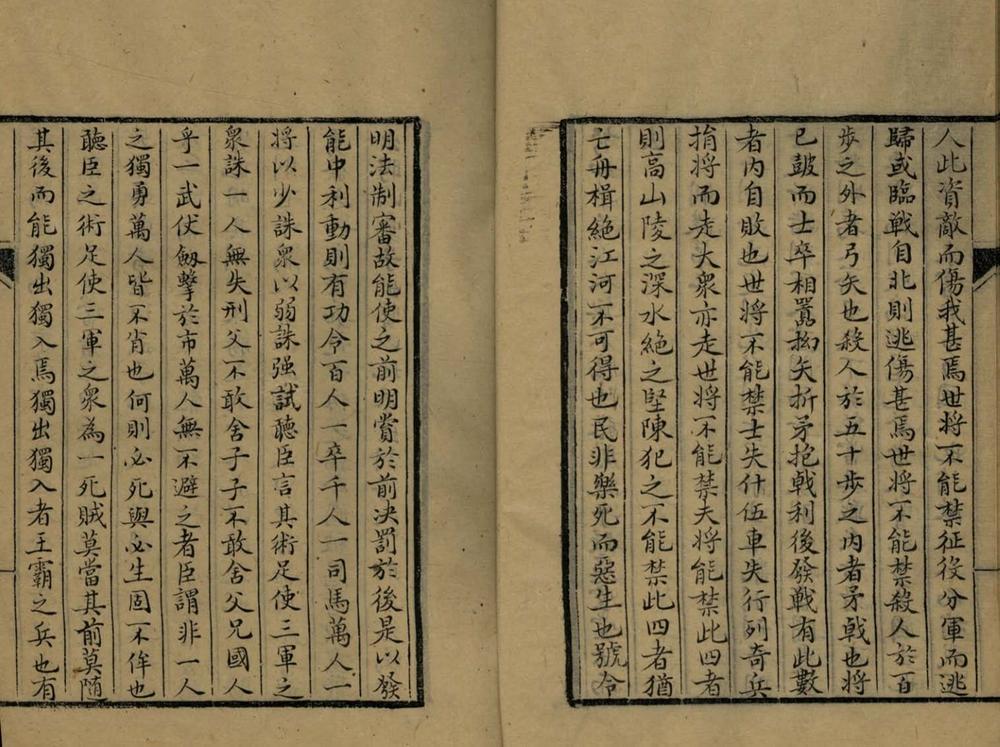 人此資敵而傷我甚焉世將不能禁征役分軍而逃
歸或臨戰自北則逃傷甚焉世將不能禁殺人於百
歩之外者弓矢也殺人於五十歩之内者矛戟也將
已鼓而士卒相嚻拗矢折矛抱戟利後發戰有此數
者内自敗也世將不能禁士失什伍車失行列奇兵
捐將而走大衆亦走世將不能禁夫將能禁此四者
則高山陵之深水絶之堅陳犯之不能禁此四者猶
亡舟楫絶江河不可得也民非樂死而惡生也號令
明法制審故能使之前明賞於前决罰於後是以發
能中利動則有功令百人一卒千人一司馬萬人一
將以少誅衆以弱誅强試聽臣言其術足使三軍之
衆誅一人無失刑父不敢舍子子不敢舍父兄國人
乎一武仗劔擊於市萬人無不避之者臣謂非一人
之獨勇萬人皆不肖也何則必死與必生固不侔也
聽臣之術足使三軍之衆為一死賊莫當其前莫隨
其後而能獨出獨入焉獨出獨入者王霸之兵也有